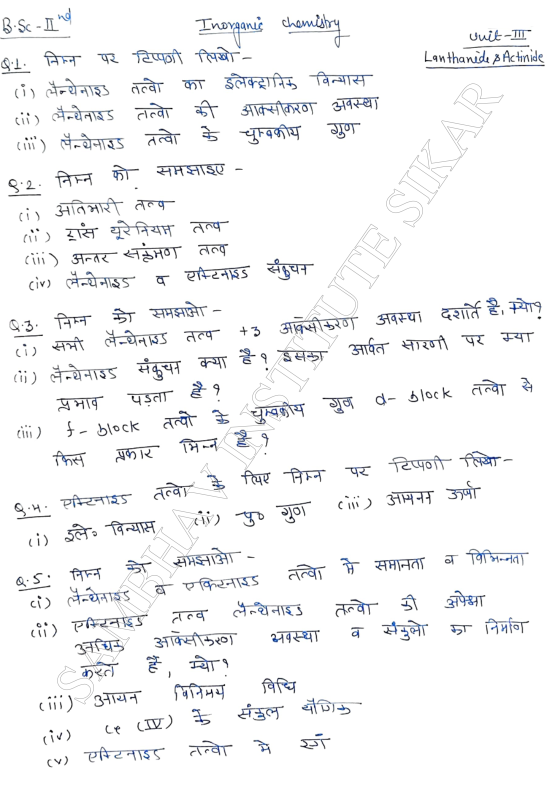 B.Sc-IInd
Inorganic chemistry
Unit-III
Lanthanide & Actinide
Q.1. निम्न पर टिप्पणी लिखो-
(i) लैन्थेनाइड तत्वो का इलेक्ट्रानिक विन्यास
(ii) लैन्थेनाइड तत्वो की आक्सीकरण अवस्था
(iii) लैन्थेनाइड तत्वो के चुम्बकीय गुण
Q.2. निम्न को समझाइए -
(i) अतिभारी तत्व
(ii) ट्रांस यूरेनियम तत्व
(iii) अन्तर संक्रमण तत्व
(iv) लैन्थेनाइड व एक्टिनाइड संकुचन
Q.3. निम्न को समझाओ-
(i) सभी लैन्थेनाइड तत्व +3 आक्सीकरण अवस्था दर्शाते है, क्यो?
(ii) लैन्थेनाइड संकुचन क्या है? इसका आर्वत सारणी पर क्या
प्रभाव पड़ता है?
(iii) f-block तत्वो के चुम्बकीय गुण d-block तत्वो से
किस प्रकार भिन्न है?
Q.4. एक्टिनाइड तत्वो के लिए निम्न पर टिप्पणी लिखो-
(i) इले० विन्यास (ii) चु० गुण (iii) आयनन ऊर्जा
Q.5. निम्न को समझाओ -
(i) लैन्थेनाइड व एक्टिनाइड तत्वो मे समानता व विभिन्नता
(ii) एक्टिनाइड तत्व लैन्थेनाइड तत्वो की अपेक्षा
अधिक आक्सीकरण अवस्था व संकुलो का निर्माण
करते है, क्यो?
(iii) आयन विनिमय विधि
(iv) Ce (IV) के संकुल यौगिक
(v) एक्टिनाइड तत्वो मे रंग
SAMBHAV INSTITUTE SIKAR